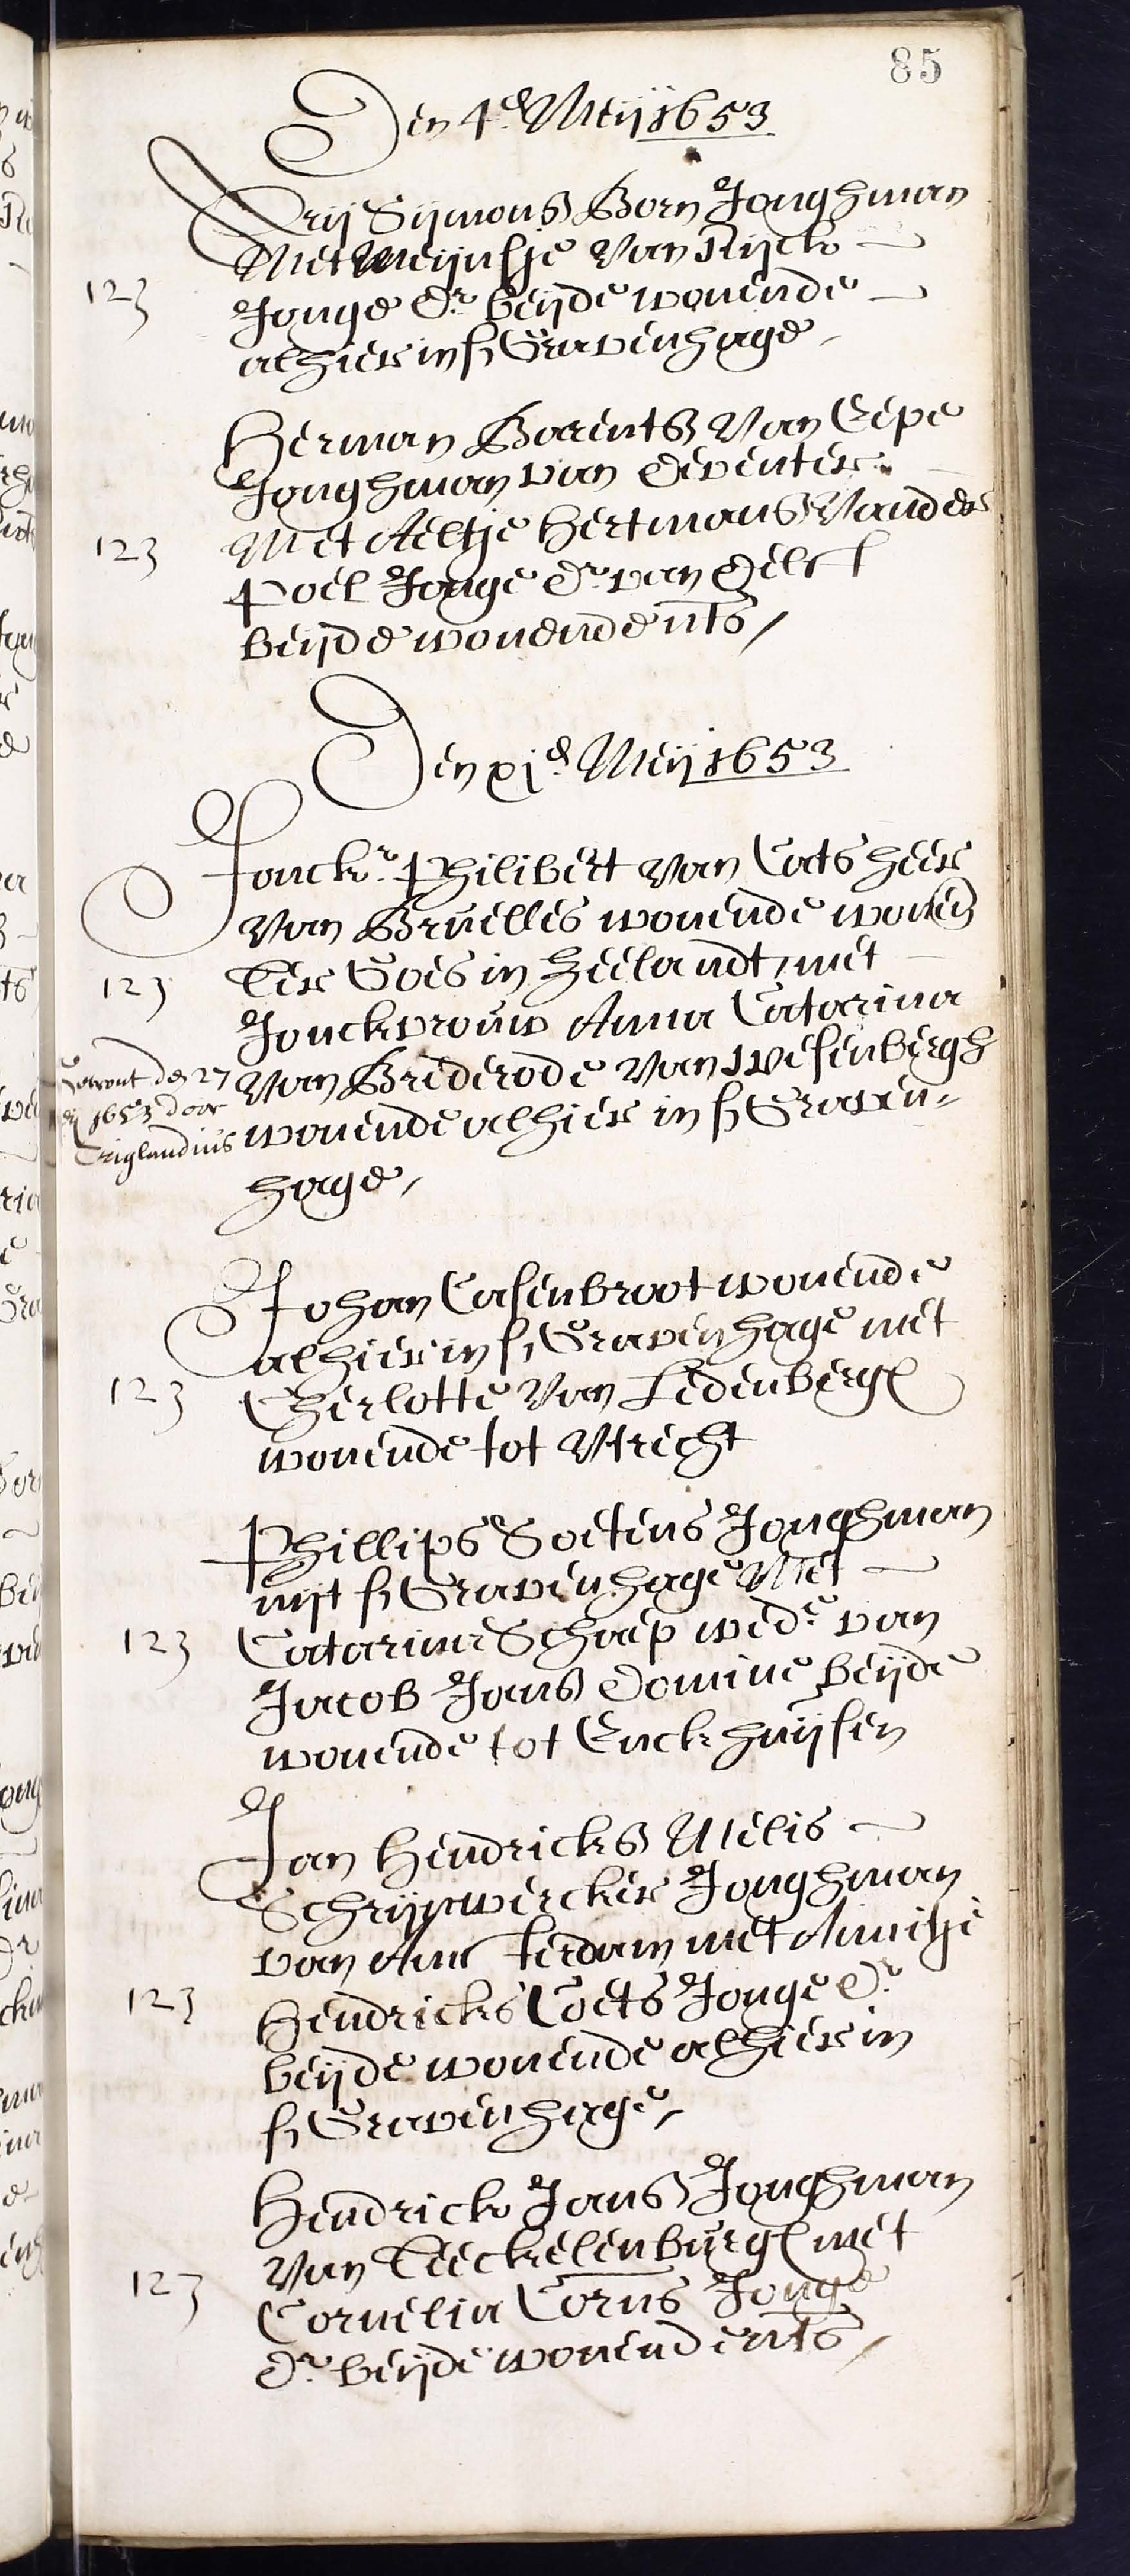 85
Den 4e Meij 1653
Arij Sijmons Born Jonghman
Met Meijnsje van Rijck
123
Jonge Dr. beijde wonende
alhier in s Gravenhage
Herman Barents van Eepe
Jonghman van Deventer
123
Met Aeltje Hertmans vander
Poel Jonge Dr. van Delft
beijde wonende uts
Den xje Meij 1653
Jonckr. Philibert van Cats heer
van Bruelles wonende
123
Ter Goes in Zeelandt, met
Jonckvrouw Anna Catarina
van Brederode van Wesenbergh
Getrout den 27
Meij 1653 door
Triglandius
wonende alhier in s Graven-
hage,
Johan Casenbroot wonende
alhier in s Gravenhage met
123
Cherlotte van Ledenbergh
wonende tot Vtrecht
Phillips Soetens Jonghman
uijt s Gravenhage Met
123
Catarina Schaep wede van
Jacob Jans Domine beijde
wonende tot Enckhuijsen
Jan Hendricks Melis
Schrijnwercker Jonghman
van Amsterdam met Annitje
123
Hendricks Coets Jonge Dr.
beijde wonende alhier in
s Gravenhage,
Hendrick Jans Jonghman
van Teeckelenburgh met
123
Cornelia Corns Jonge
Dr. beijde wonende uts,